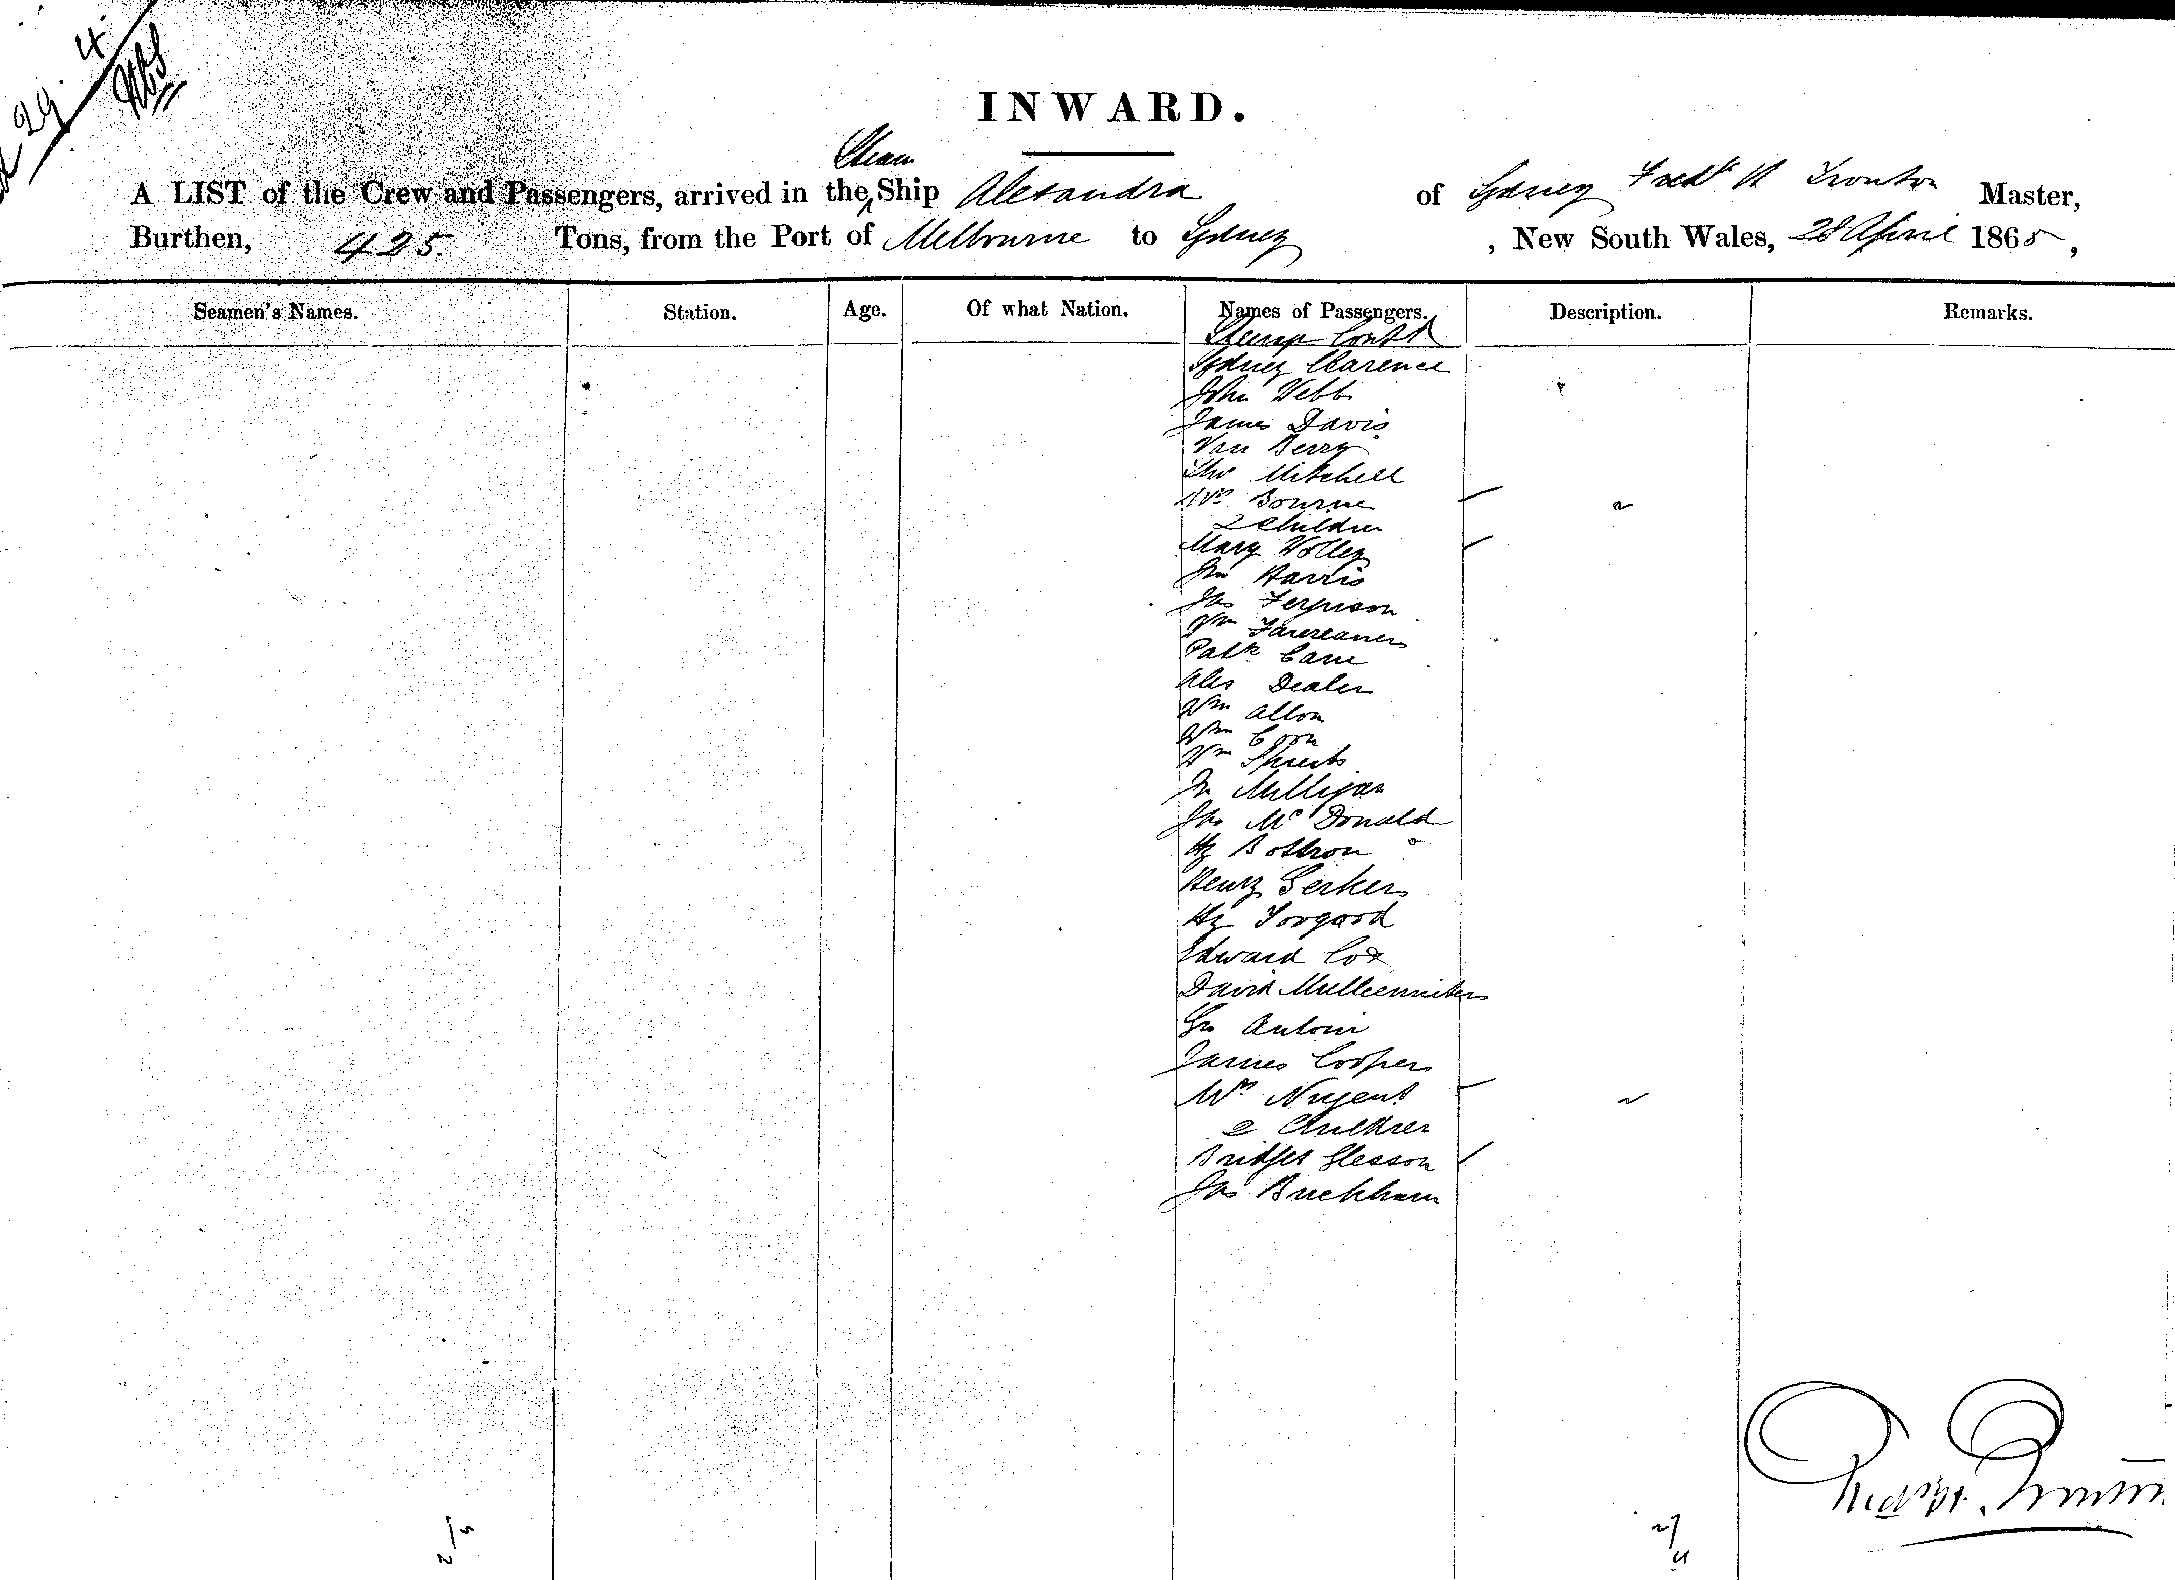 29/4
INWARD.
Steam
A LIST of the Crew and Passengers, arrived in the ^ Ship Alexandra of Sydney Fredk H Trouton Master,
Burthen, 425 Tons, from the Port of Melbourne to Sydney, New South Wales, 28 April 1865,
Seamen's Names. Station. Age. Of what Nation. Names of Passengers. Description. Remarks.
Sydney Clarence
John Webb
James Davis
Van Berry
Tho Mitchell
Mrs Bourne
2 Children
Mary Wolley
Jno Harris
Jas Ferguson
Wm
Patk Cane
Alex Dealer
Wm Allon
Wm Coon
Wm
Jn Milligan
Jas McDonald
Hy Bothron
Henry Gerkers
Hy Toogood
Edward Cox
David
Go Antoni
James Cooper
Mrs Nugent
2 Children
Bridget Gleeson
Jas Buckham
Fredk H. Trouton